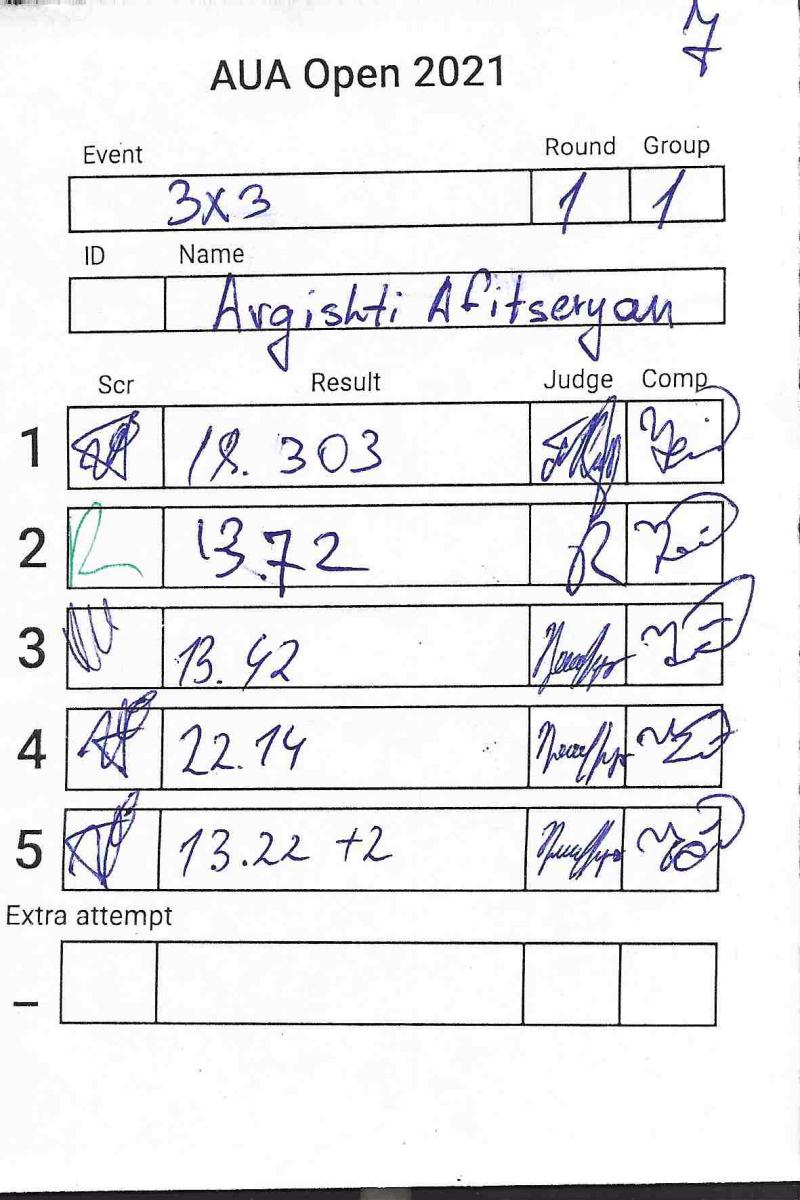 7
AUA Open 2021
Event Round Group
3x3 1 1
ID Name
Argishti Afitseryan
Scr Result Judge Comp
1 18.303
2 13.72
3 13.42
4 22.14
5 13.22 +2
Extra attempt
_